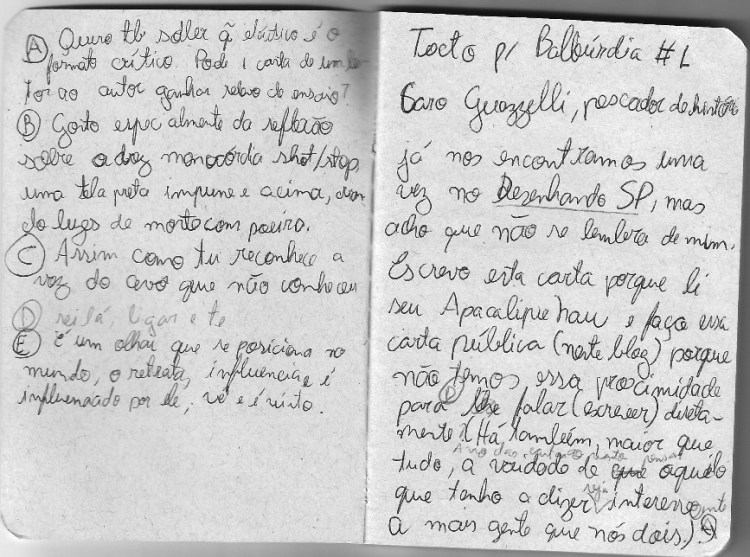 Ⓐ Quero tb saber q̃ elástico é o
formato crítico. Pode 1 carta de um lei
tor ao autor ganhar relevo de ensaio?
Ⓑ Gosto especialmente da reflexão
sobre a monocórdia shot/stop,
uma tela preta impune e acima,
do luzes de morte com poeira.
Ⓒ Assim como tu reconhece a
voz do avo que não conheceu
Ⓓ sei lá, ligar e te
Ⓔ é um olhar que se posiciona no
mundo, o retrata, influencia e é
influenciado por ele, vê e é visto.
Texto p/ Balbúrdia #1
Caro Guazzelli, pescador de histór
já nos encontramos uma
vez no Desenhando SP, mas
acho que não se lembra de mim.
Escrevo esta carta porque li
seu Apocalipse Nau e faço essa
carta pública (neste blog) porque
não temos essa proximidade
para falar (escrever) direta-
mente. (Há, também, maior que
tudo, a vontade de que aquilo
que tenho a dizer seja interessante
a mais gente que nós dois.) Ⓐ